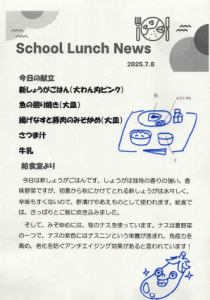 School Lunch News
2025.7.8
今日の献立
新しょうがごはん(大わん肉ピンク)
魚の照り焼き(大皿)
揚げなすと豚肉のみそ炒め(大皿)
さつま汁
牛乳
給食室より
今日は新しょうがごはんです。しょうがは独特の香りの強い、香
味野菜ですが、初夏から秋にかけてとれる新しょうがは水々しく、
辛味も少ないので、酢漬けやあえものとして使われます。給食で
は、さっぱりとご飯に炊き込みました。
そして、みそ炒めには、旬のナスを使っています。ナスは夏野菜
の一つで、ナスの紫色にはナスニンという栄養が含まれ、免疫力を
高め、老化を防ぐアンチエイジング効果があると言われています！
魚